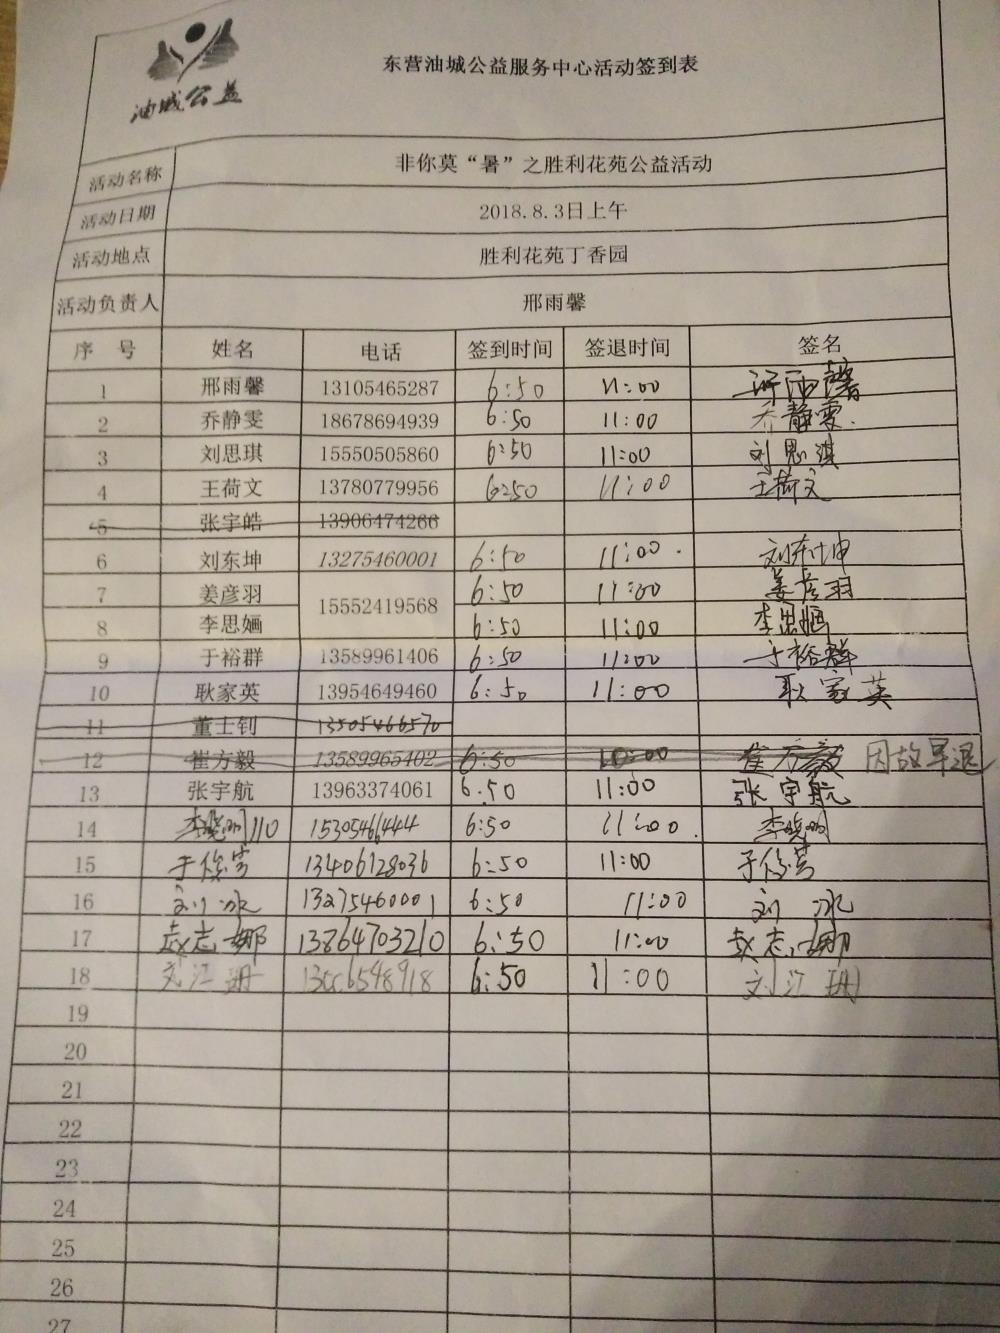 油城公益
东营油城公益服务中心活动签到表
活动名称 非你莫“暑”之胜利花苑公益活动
活动日期 2018.8.3日上午
活动地点 胜利花苑丁香园
活动负责人 邢雨馨
序 号 姓名 电话 签到时间 签退时间 签名
1 邢雨馨 13105465287 6:50 11:00 邢雨馨
2 乔静雯 18678694939 6:50 11:00 乔静雯
3 刘思琪 15550505860 6:50 11:00 刘思淇
4 王荷文 13780779956 6:50 11:00 王荷文
5 张宇皓 13906474266
6 刘东坤 13275460001 6:50 11:00 刘东坤
7 姜彦羽 15552419568 6:50 11:00 姜彦羽
8 李思婳 6:50 11:00 李思婳
9 于裕群 13589961406 6:50 11:00 于裕群
10 耿家英 13954649460 6:50 11:00 耿家英
11 董士钊 13505466570
12 崔方毅 13589965402 6:50 10:00 崔方毅 因故早退
13 张宇航 13963374061 6:50 11:00 张宇航
14 李晓明110 15305466444 6:50 11:00 李晓明
15 13406128036 6:50 11:00
16 刘冰 13275460001 6:50 11:00 刘冰
17 赵志娜 13864703210 6:50 11:00 赵志娜
18 刘江珊 6:50 11:00 刘江珊
19
20
21
22
23
24
25
26
27